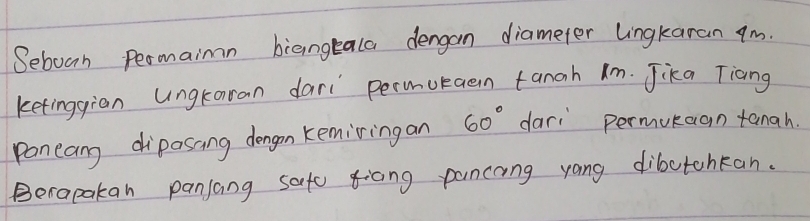 Sebuah Permainn biangkala dengan diameter lingkaran 4m.
ketinggian lingkaran dari permukaan tanah 1m. Jika Tiang
Pancang dipasang dengan kemiringan 60° dari permukaan tanah.
Berapakah panjang satu tiang pancang yang dibutuhkan.